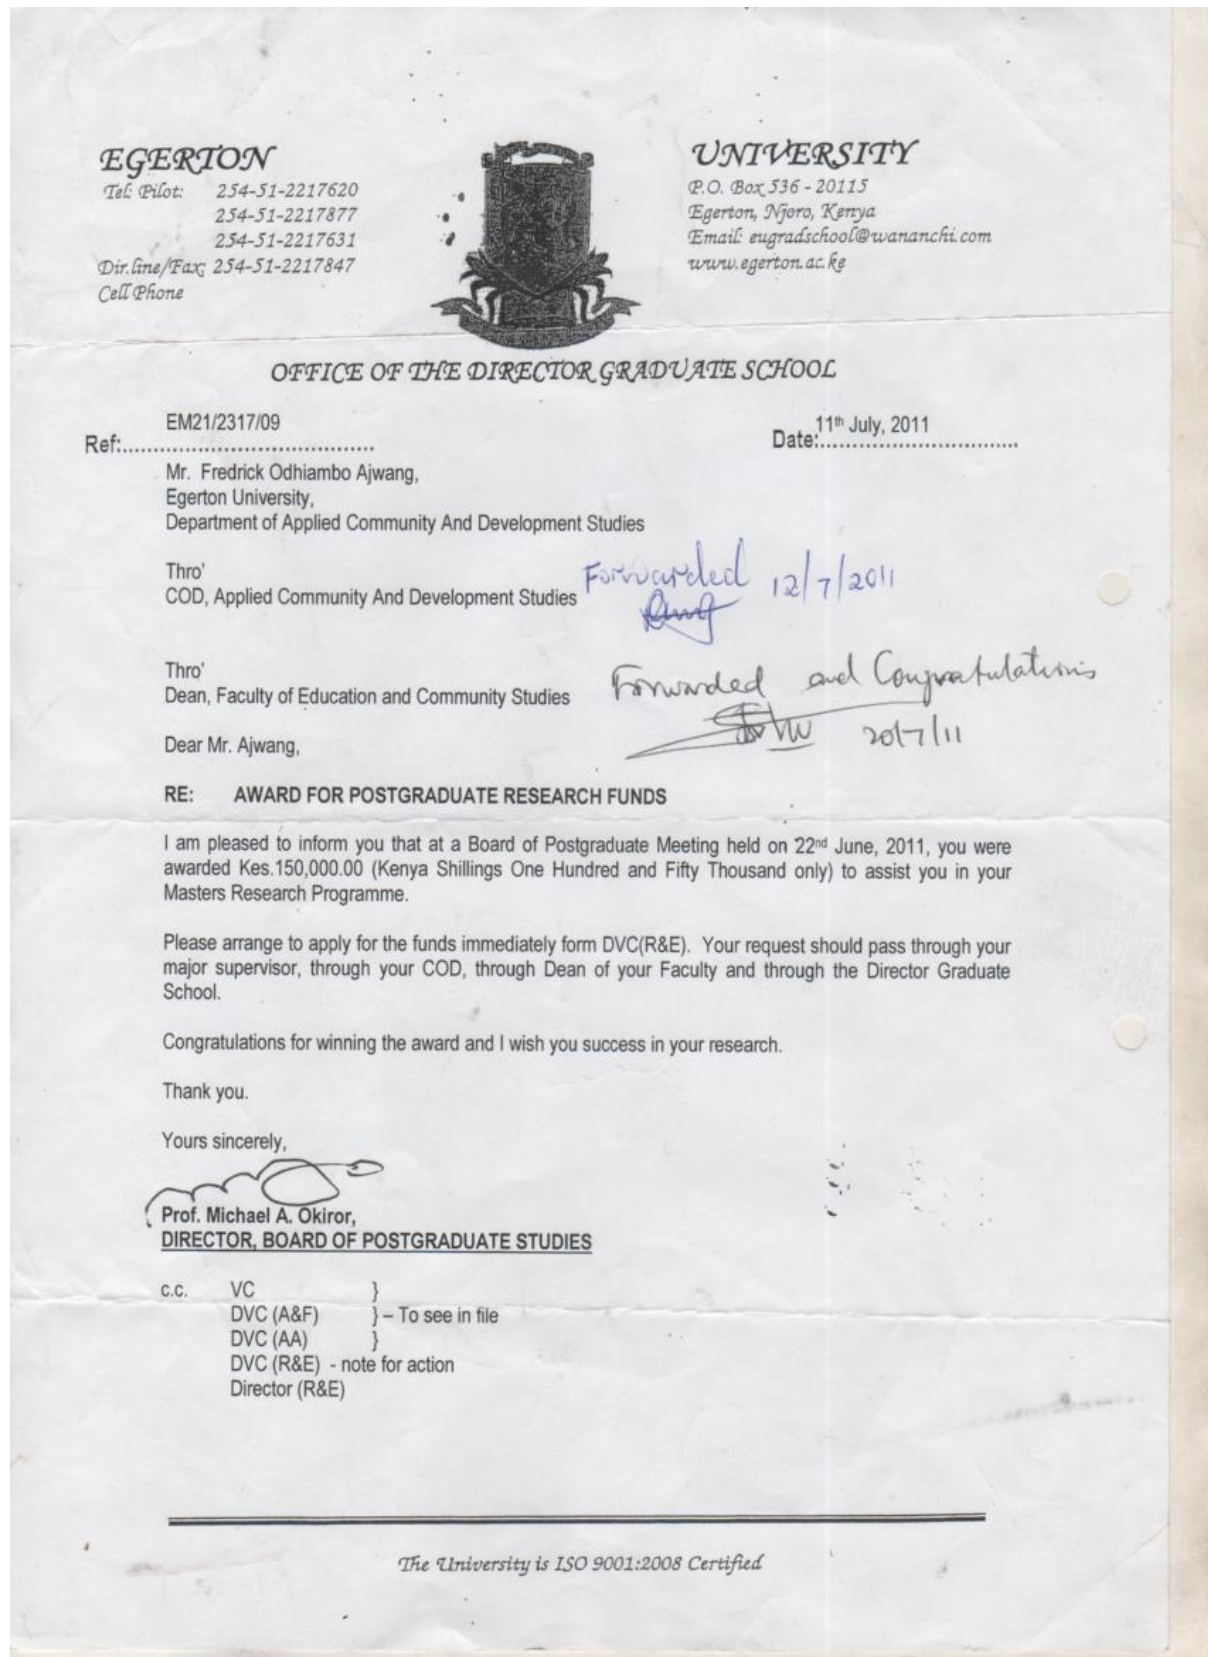 EGERTON
UNIVERSITY
Tel: Pilot: 254-51-2217620
254-51-2217877
254-51-2217631
Dir.line/Fax; 254-51-2217847
Cell Phone
P.O. Box 536 - 20115
Egerton, Njoro, Kenya
Email: eugradschool@wananchi.com
www.egerton.ac.ke
OFFICE OF THE DIRECTOR GRADUATE SCHOOL
EM21/2317/09
Ref:.......................................
11th July, 2011
Date:...............................
Mr. Fredrick Odhiambo Ajwang,
Egerton University,
Department of Applied Community And Development Studies
Thro'
COD, Applied Community And Development Studies
Forwarded 12/7/2011
Thro'
Dean, Faculty of Education and Community Studies
Forwarded and Congratulations
20/7/11
Dear Mr. Ajwang,
RE: AWARD FOR POSTGRADUATE RESEARCH FUNDS
I am pleased to inform you that at a Board of Postgraduate Meeting held on 22nd June, 2011, you were
awarded Kes.150,000.00 (Kenya Shillings One Hundred and Fifty Thousand only) to assist you in your
Masters Research Programme.
Please arrange to apply for the funds immediately form DVC(R&E). Your request should pass through your
major supervisor, through your COD, through Dean of your Faculty and through the Director Graduate
School.
Congratulations for winning the award and I wish you success in your research.
Thank you.
Yours sincerely,
Prof. Michael A. Okiror,
DIRECTOR, BOARD OF POSTGRADUATE STUDIES
c.c. VC }
DVC (A&F) } – To see in file
DVC (AA) }
DVC (R&E) - note for action
Director (R&E)
The University is ISO 9001:2008 Certified